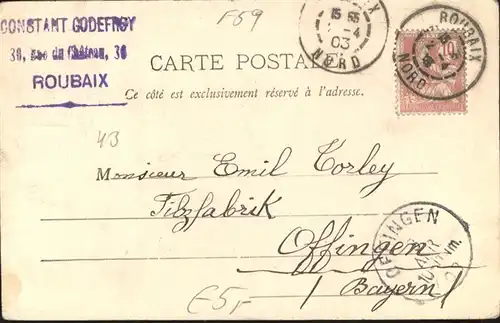 CONSTANT GODEFROY
30, Rue du Château, 30
ROUBAIX
F59
15 55
-4
03
NORD
ROUBAIX
NORD
10
CARTE POSTALE
Ce côté est exclusivement réservé à l'adresse.
43
Monsieur Emil Torley
Filzfabrik
Offingen
(Bayern)
OFFINGEN
APR
Vm.
€5,-